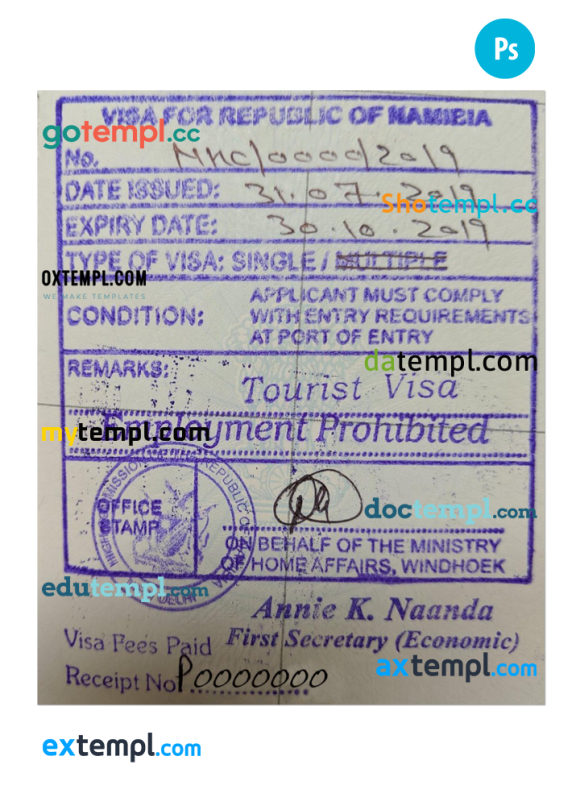 Ps
VISA FOR REPUBLIC OF NAMIBIA
gotempl.cc
No. NHC/0000/2019
DATE ISSUED: 31.07.2019
Shotempl.cc
EXPIRY DATE: 30.10.2019
TYPE OF VISA: SINGLE / MULTIPLE
OXTEMPL.COM
WE MAKE TEMPLATES
CONDITION: APPLICANT MUST COMPLY
WITH ENTRY REQUIREMENTS
AT PORT OF ENTRY
datempl.com
REMARKS: Tourist Visa
mytempl.com
Employment Prohibited
HIGH COMMISSION OF THE REPUBLIC OF
DELHI
OFFICE
STAMP
doctempl.com
ON BEHALF OF THE MINISTRY
OF HOME AFFAIRS, WINDHOEK
edutempl.com
Annie K. Naanda
Visa Fees Paid First Secretary (Economic)
axtempl.com
Receipt No P0000000
extempl.com